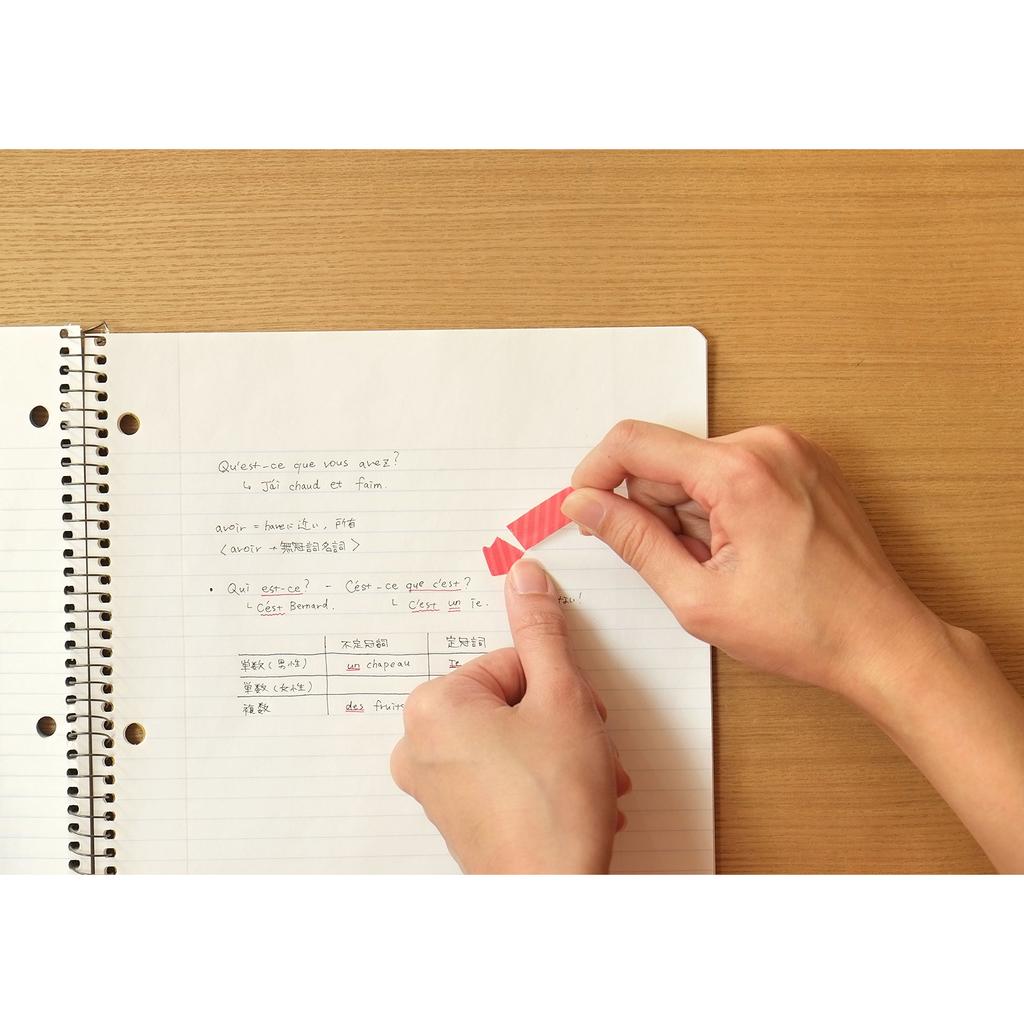 Qu'est-ce que vous avez?
↳ J'ai chaud et faim.
avoir = haveに近い, 所有
〈avoir + 無冠詞名詞〉
• Qui est-ce? - C'est-ce que c'est?
└ C'est Bernard. └ C'est un Ie. ない!
不定冠詞 定冠詞
単数(男性) un chapeau Ie
単数(女性)
複数 des fruits